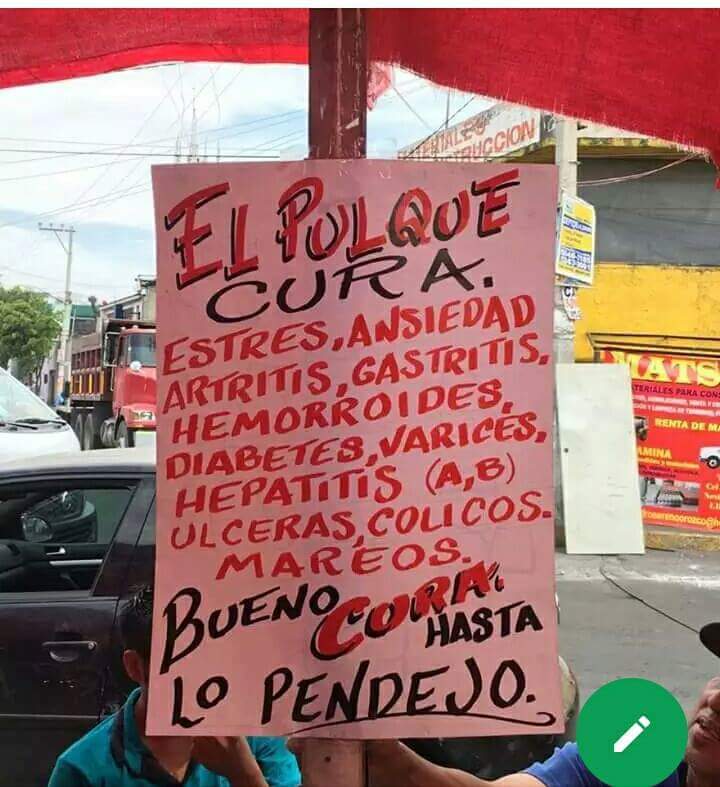 EL PULQUE
CURA.
ESTRES, ANSIEDAD
ARTRITIS, GASTRITIS,
HEMORROIDES,
DIABETES, VARICES,
HEPATITIS (A,B)
ULCERAS, COLICOS.
MAREOS.
BUENO CURA
HASTA
LO PENDEJO.
MATS
RENTA DE